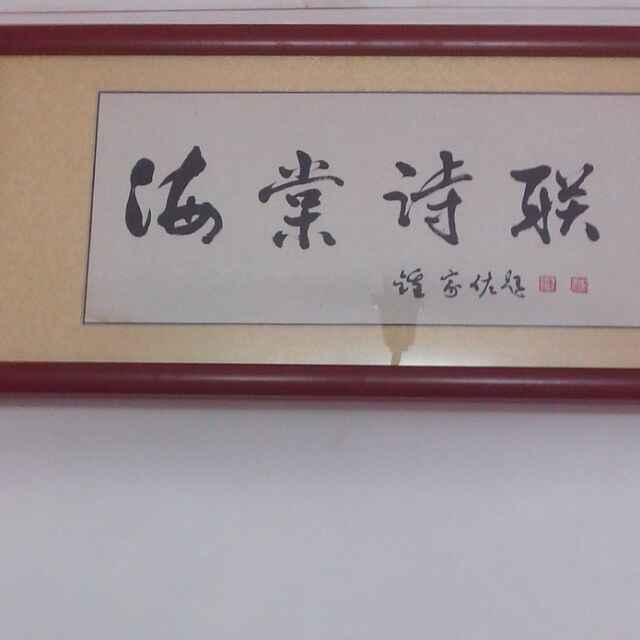 海棠诗联
鍾家佐题